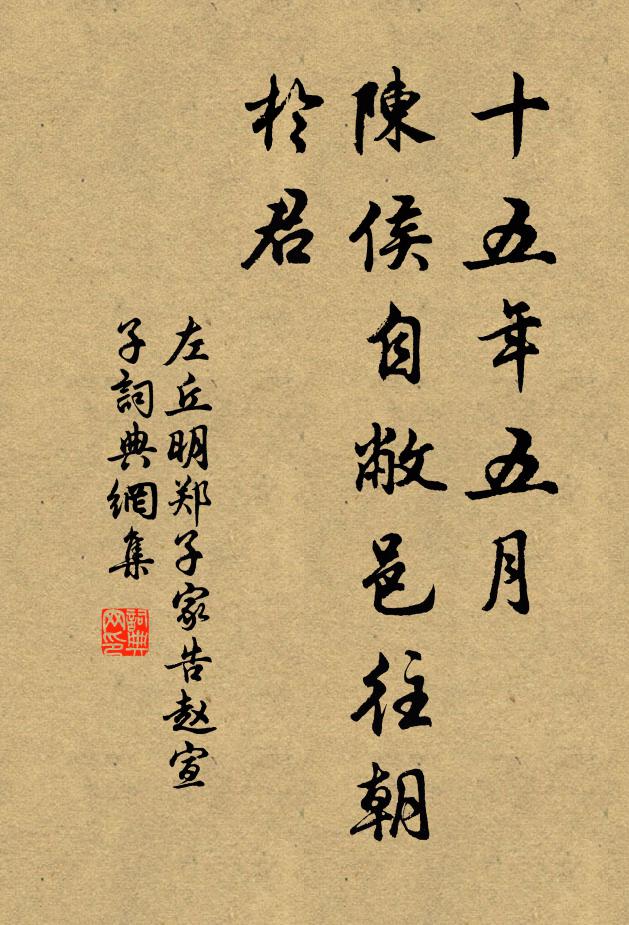 十五年五月
陳侯自敝邑往朝
於君
左丘明郑子家告赵宣
子詞典網集
詞典
网印